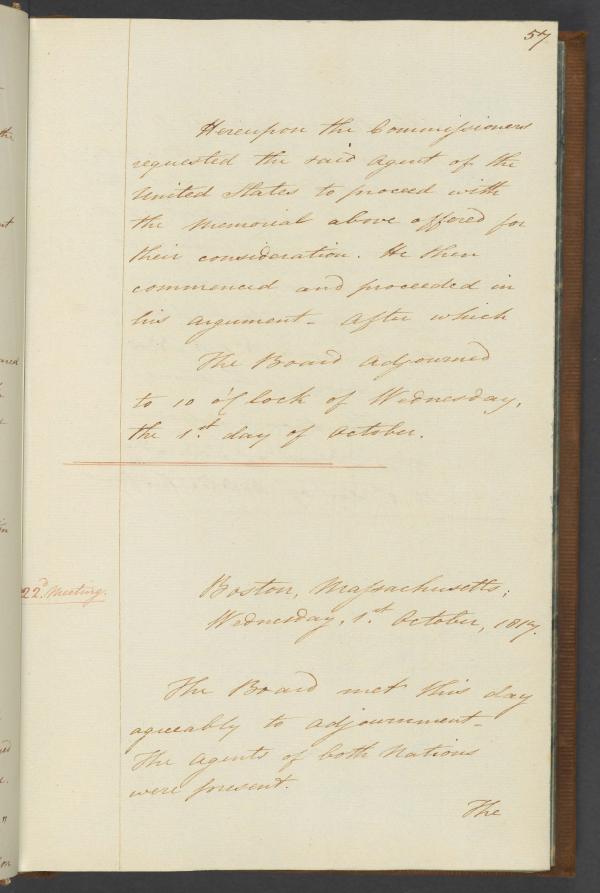 57
Hereupon the Commissioners
requested the said Agent of the
United States to proceed with
the Memorial above offered for
their consideration. He then
commenced and proceeded in
his argument - After which
The Board adjourned
to 10 o'Clock of Wednesday,
the 1.st day of October.
22.d Meeting.
Boston, Massachusetts;
Wednesday, 1.st October, 1817.
The Board met this day
agreeably to adjournment -
The Agents of both Nations
were present.
The